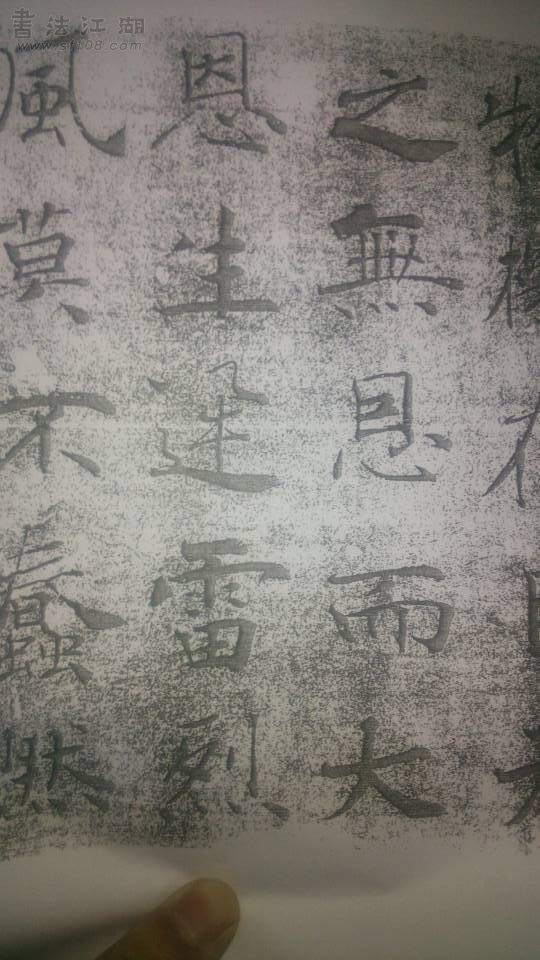 書法江湖
www.sf108.com
物機在目天
之無恩而大
恩生迅雷烈
風莫不蠢然